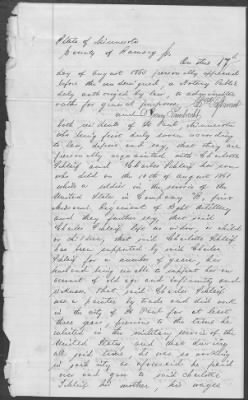 State of Minnesota
County of Ramsey
On this 17th
day of August 1880 personally appeared
before the undersigned, a Notary Public
duly authorized by law, to administer
oaths for general purposes,
and
both residents of St Paul Minnesota
who being first duly sworn according
to law, depose and say, that they are
personally acquainted with Charlotte
and Charles her son
who died on the 10th of August 1861
while a soldier in the service of the
United States in Company
Regiment of Light Artillery
and they further say that said
Charles left no widow, or child
or children, that said Charlotte
has been supported by said Charles
for a number of years, her
husband being unable to support her on
account of old age and infirmity and
sickness, that said Charles
was a painter by trade and did work
in the city of St Paul for at least
three years, previous to the time he
enlisted in the military service of the
United States and that during
all said time, he was so working
in said city as aforesaid he paid
over and gave to said Charlotte
his mother, his wages